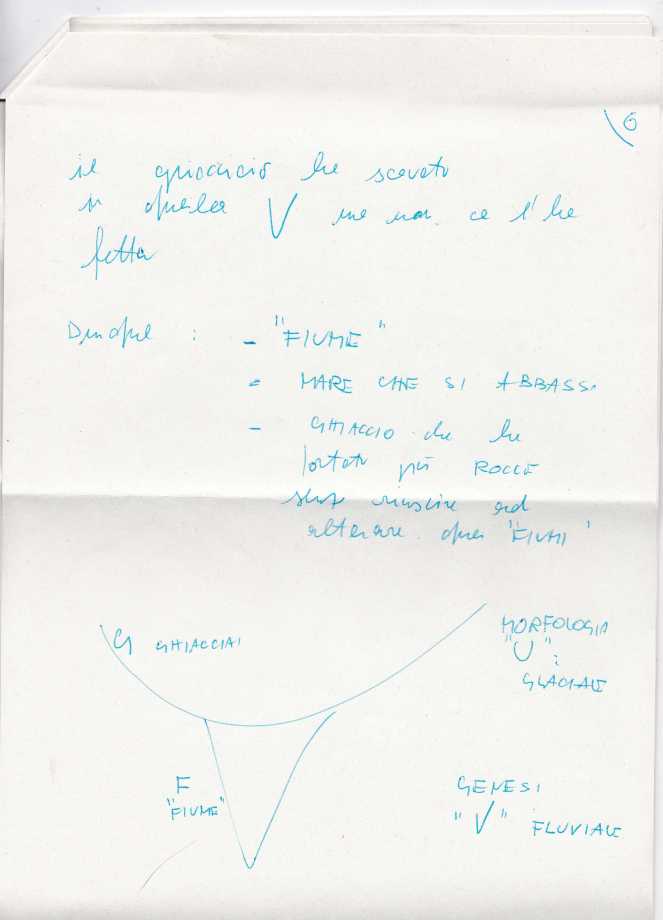 6
il ghiaccio ha scavato
in quella V ma non ce l'ha
fatta
Dunque : - "FIUME"
- MARE CHE SI ABBASSA
- GHIACCIO che ha
portato giù ROCCE
senza riuscire ad
alterare quei "FIUMI"
G GHIACCIAI
MORFOLOGIA
"U" :
GLACIALE
F
"FIUME"
GENESI
"V" FLUVIALE